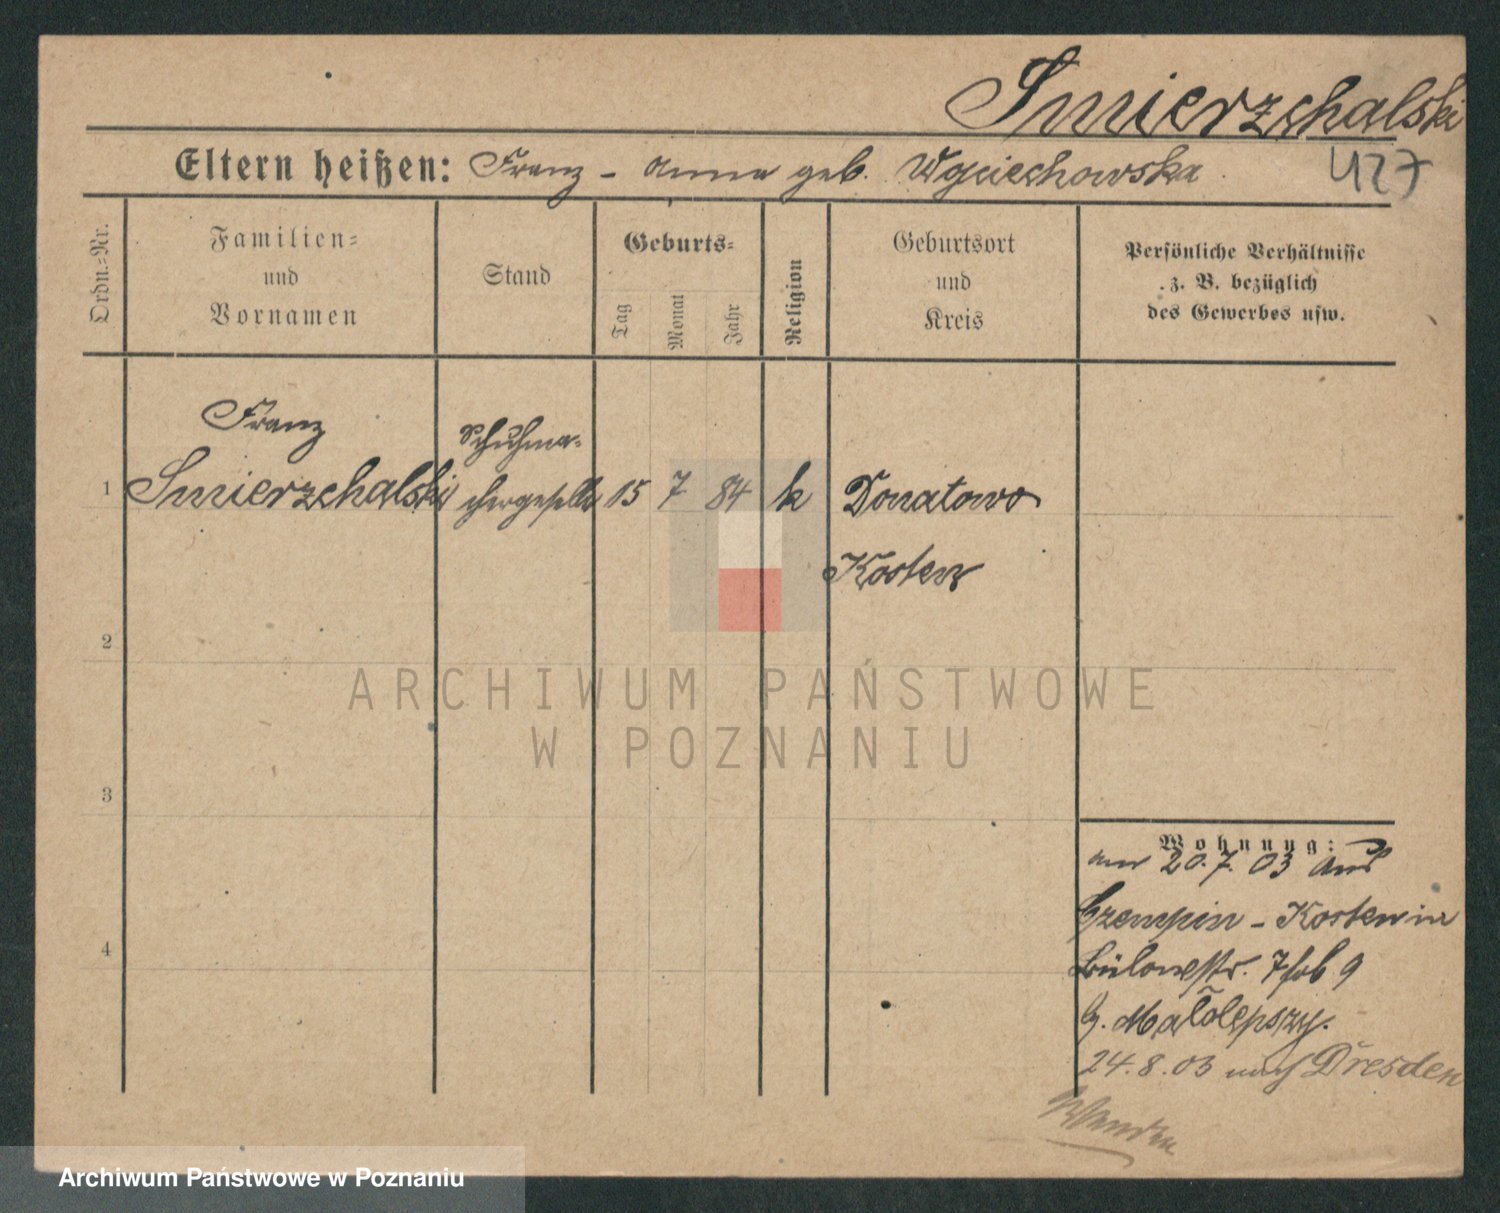 Smierzchalski
Eltern heißen: Franz - Anna geb. Wojciechowska
427
Ordn.-Nr.
Familien-
und
Vornamen
Stand
Geburts-
Tag
Monat
Jahr
Religion
Geburtsort
und
Kreis
Persönliche Verhältnisse
z. B. bezüglich
des Gewerbes usw.
Franz
Schuhma-
1 Smierzchalski chergeselle 15 7 84 k Donatowo
Kosten
2
ARCHIWUM PAŃSTWOWE
W POZNANIU
3
Wohnung:
am 20.7.03 aus
Czempin - Kosten in
Bülowstr. 7 9
Małolepszy.
4
24.8.03 nach Dresden
Wenden
Archiwum Państwowe w Poznaniu